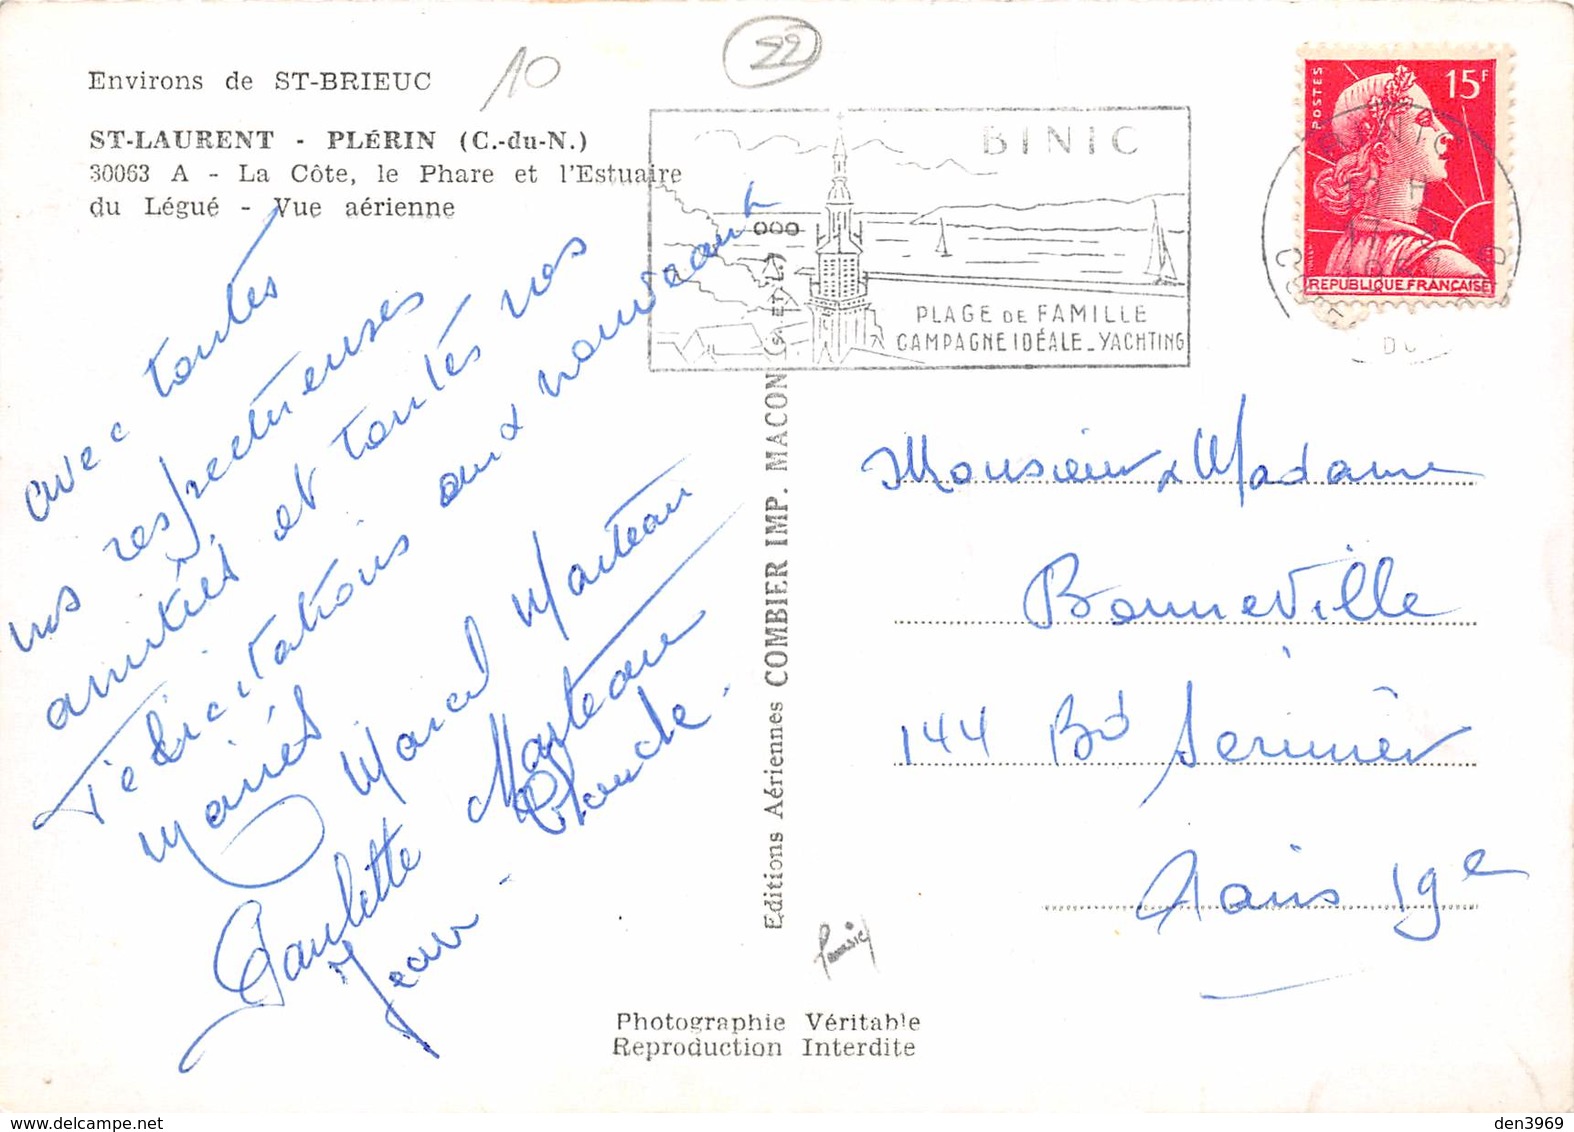 Environs de ST-BRIEUC
10
22
ST-LAURENT - PLÉRIN (C.-du-N.)
30063 A - La Côte, le Phare et l'Estuaire
du Légué - Vue aérienne
BINIC
PLAGE DE FAMILLE
CAMPAGNE IDÉALE_YACHTING
POSTES
15F
REPUBLIQUE FRANÇAISE
avec toutes
nos respectueuses
amitiés et toutes nos
félicitations aux nouveaux
mariés
Marcel Marteau
Paulette Marteau
Jean Claude.
Editions Aériennes COMBIER IMP. MACON (S. ET L.)
Monsieur & Madame
Bonneville
144 Bd Serurier
Paris 19e
Photographie Véritable
Reproduction Interdite
den3969